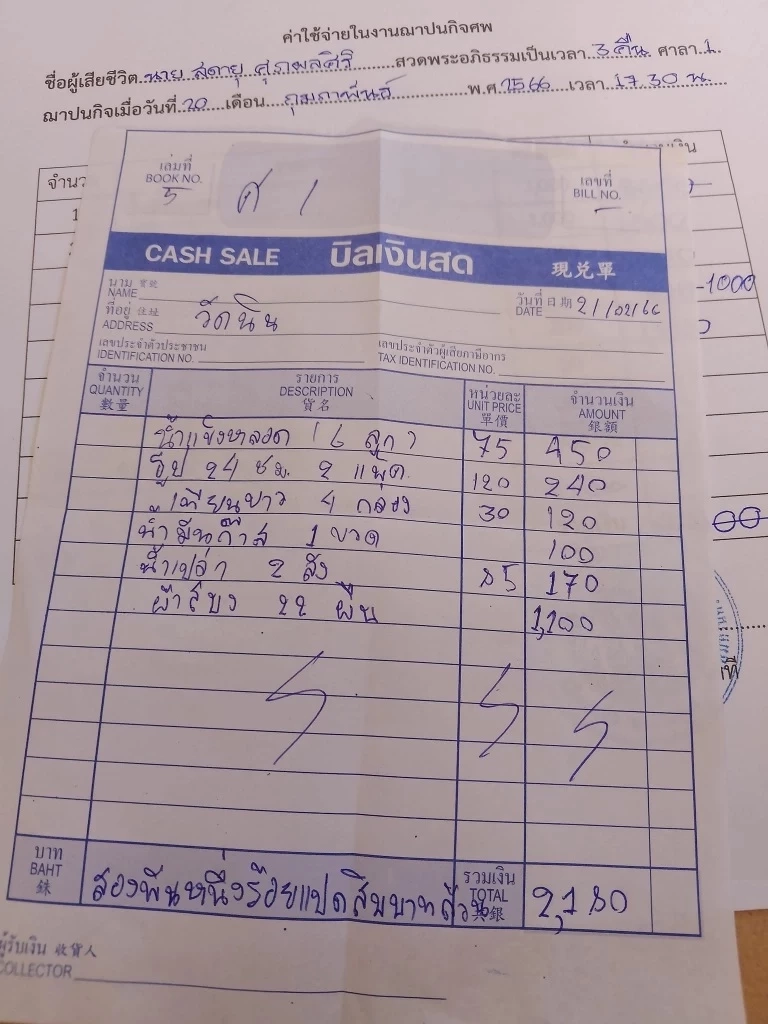 ค่าใช้จ่ายในงานฌาปนกิจศพ
ชื่อผู้เสียชีวิต นาย สดายุ ศุภผลศิริ สวดพระอภิธรรมเป็นเวลา 3 คืน ศาลา 1
ฌาปนกิจเมื่อวันที่ 20 เดือน กุมภาพันธ์ พ.ศ. 2566 เวลา 17.30 น.
เล่มที่
BOOK NO.
5
ศ 1
เลขที่
BILL NO.
CASH SALE บิลเงินสด 現兌單
นาม 寶號
NAME
วันที่ 日期
DATE 21/02/66
ที่อยู่ 住址
ADDRESS วัดนิน
เลขประจำตัวประชาชน
IDENTIFICATION NO.
เลขประจำตัวผู้เสียภาษีอากร
TAX IDENTIFICATION NO.
จำนวน QUANTITY 數量 รายการ DESCRIPTION 貨名 หน่วยละ UNIT PRICE 單價 จำนวนเงิน AMOUNT 銀額
น้ำแข็งหลอด (6 ลูก) 75 450
ธูป 24 ชม. 2 แพ็ค 120 240
เทียนขาว 4 กล่อง 30 120
น้ำมันก๊าส 1 ขวด 100
น้ำเปล่า 2 ลัง 85 170
ผ้าสบง 22 ผืน 1,100
บาท BAHT 銖 สองพันหนึ่งร้อยแปดสิบบาทถ้วน รวมเงิน TOTAL 共銀 2,180
ผู้รับเงิน 收貨人
COLLECTOR
-1000